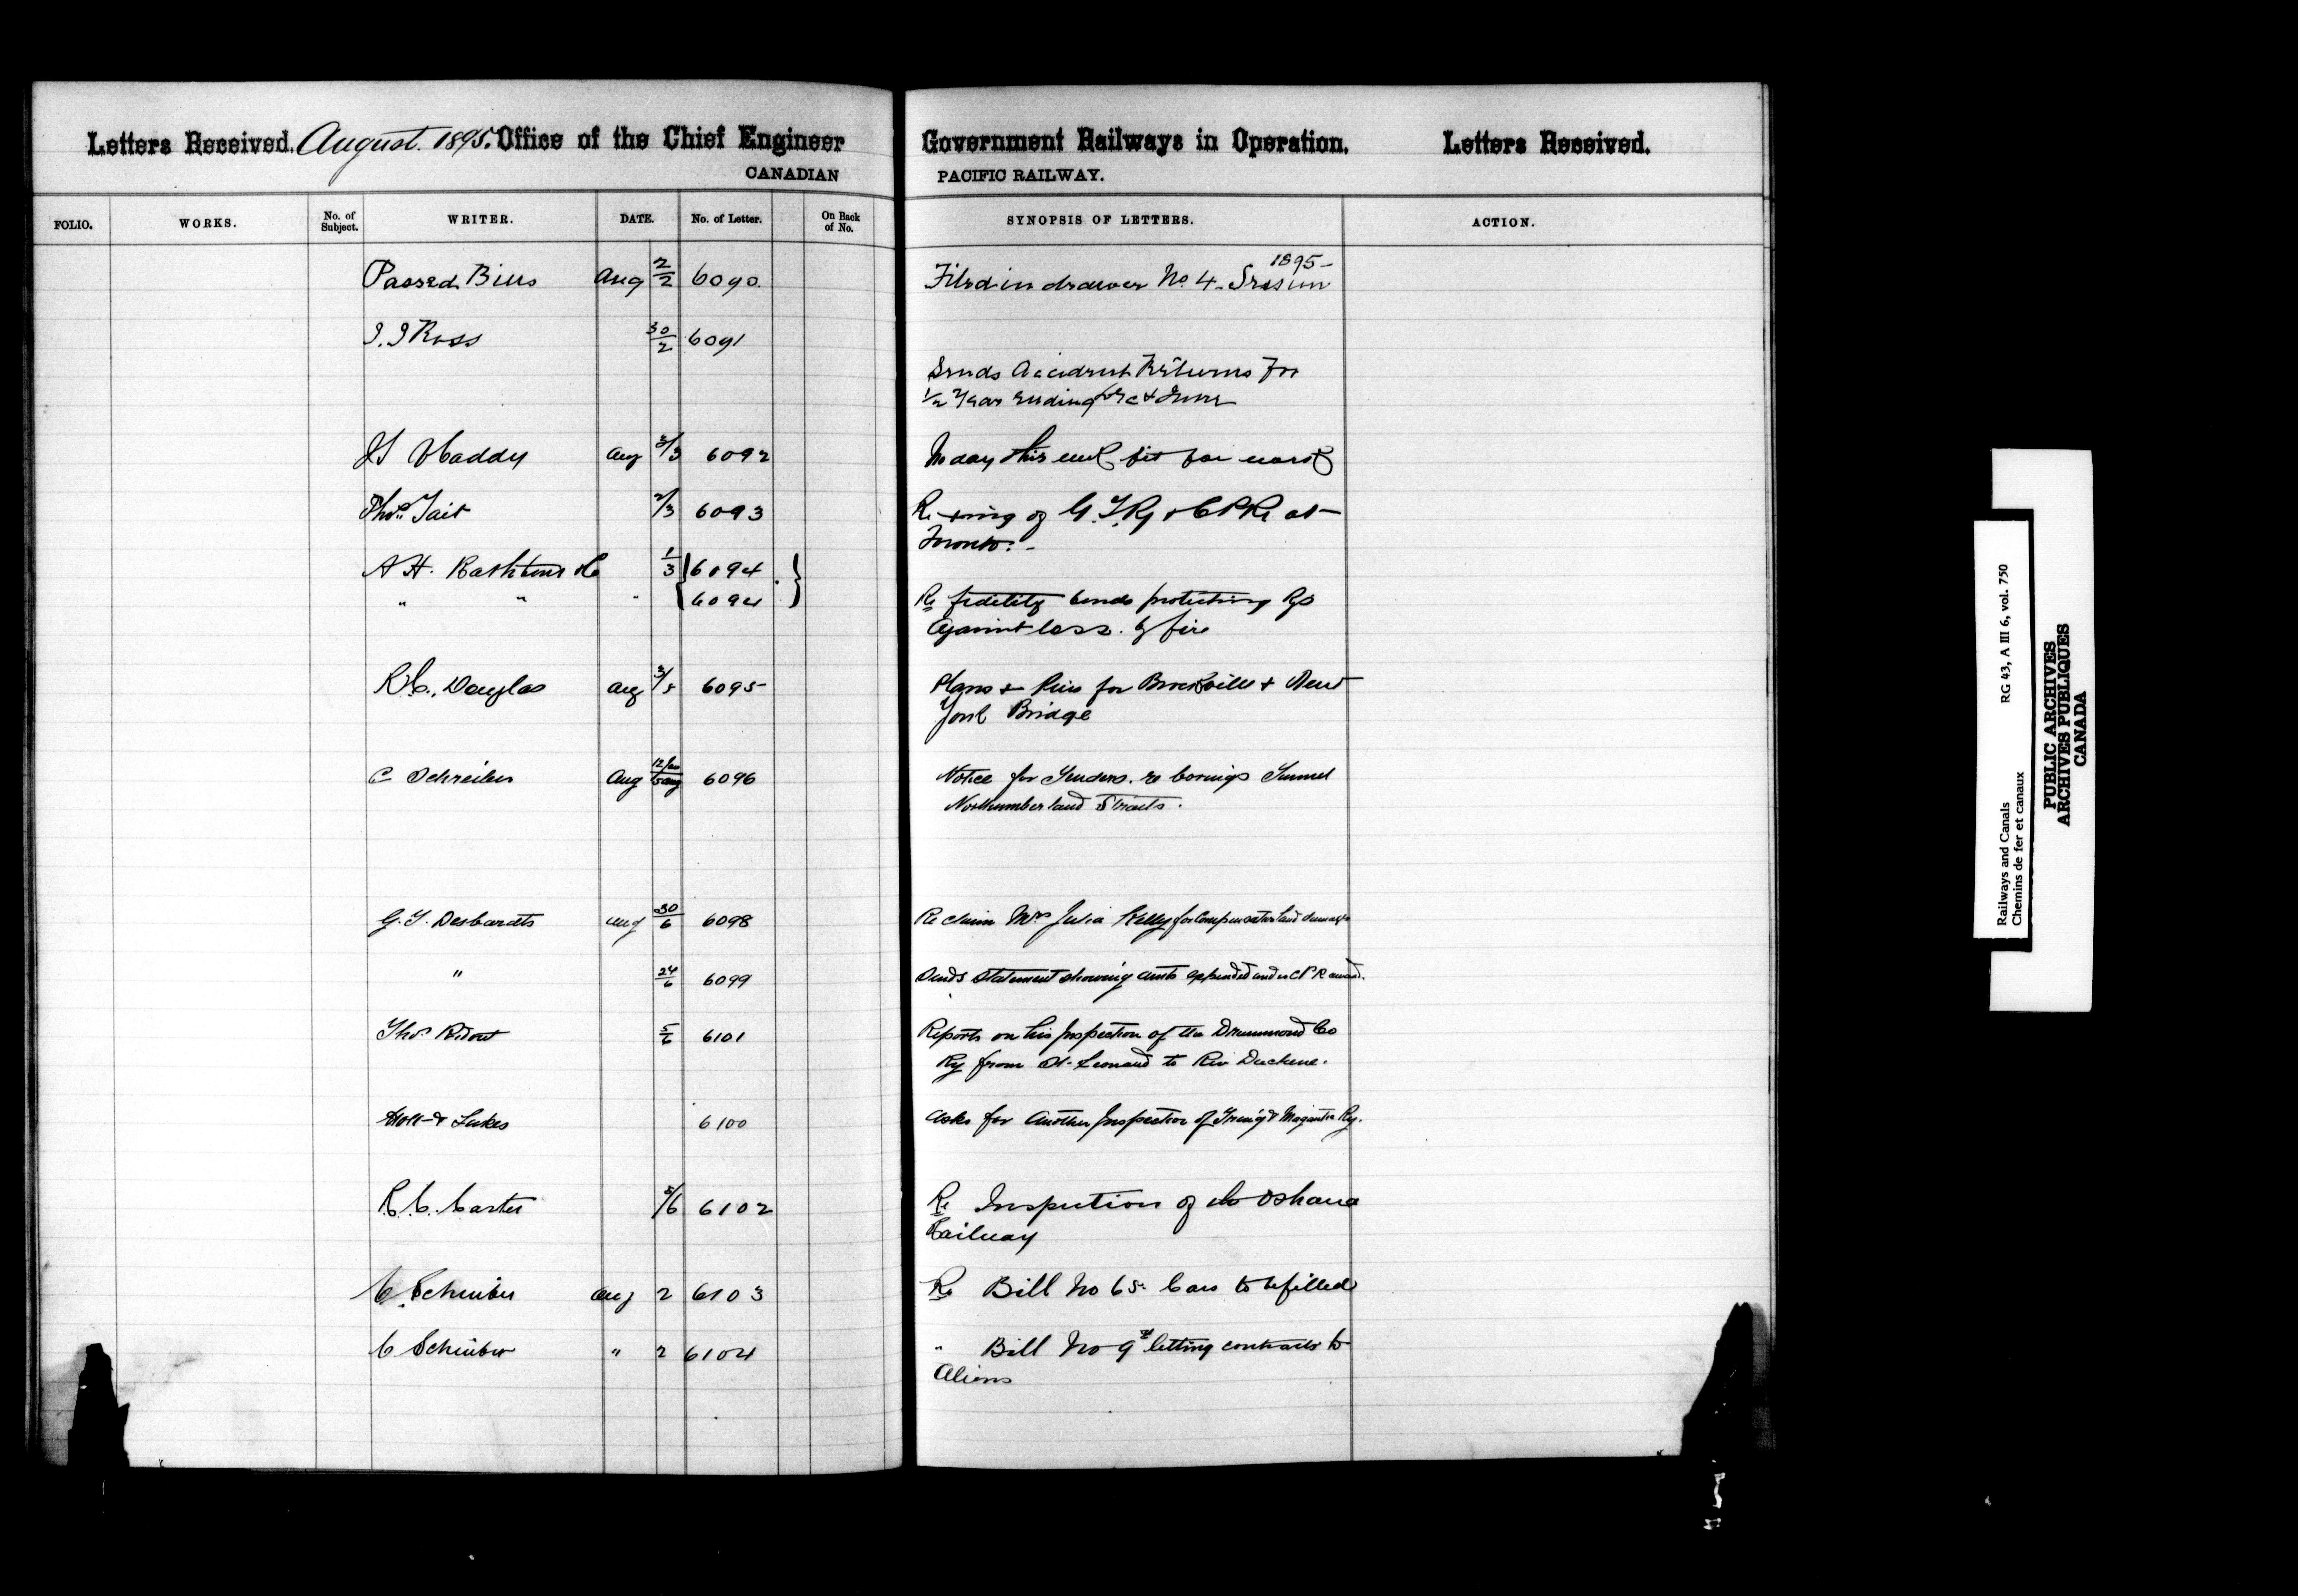 Letters Received. August. 1895. Office of the Chief Engineer
CANADIAN
Government Railways in Operation. Letters Received.
PACIFIC RAILWAY.
FOLIO. WORKS. No. of Subject. WRITER. DATE. No. of Letter. On Back of No. SYNOPSIS OF LETTERS. ACTION.
Passed Bills Aug 2/2 6090. Filed in drawer No. 4 - Session 1895 -
Ross 30/2 6091
Sends Accident Returns for
1/2 Year ending June
Haddy Aug 3/3 6092 No day this week fit for
Thos. Tait 2/3 6093 Re of G.T.Ry & CPR at
Toronto. -
A H. 1/3 6094
" " " 6094 Re fidelity bonds protecting Rys
against loss. by fire
R.C. Douglas Aug 3/5 6095 Plans & for Brockville & New
York Bridge
C Schreiber Aug 6096 Notice for Tenders. re borings Tunnel
Northumberland Straits.
G. J. Desbarats Aug 30/6 6098 Re claim Mrs Julia Kelly for compensation land damages
" 24/6 6099 Sends statement showing amts expended under CPR award.
Thos. Ridout 5/6 6101 Reports on his Inspection of the Drummond Co
Ry from St. Leonard to Riv Duchene.
& Lukes 6100 Asks for Another Inspection of & Megantic Ry.
R. C. Carter 5/6 6102 Re Inspection of Oshawa
Railway
C Schreiber Aug 2 6103 Re Bill No 65. Cars to be filled
C Schreiber " 2 6104 " Bill No 9 letting contracts to
Aliens
Railways and Canals RG 43, A III 6, vol. 750
Chemins de fer et canaux
PUBLIC ARCHIVES
ARCHIVES PUBLIQUES
CANADA